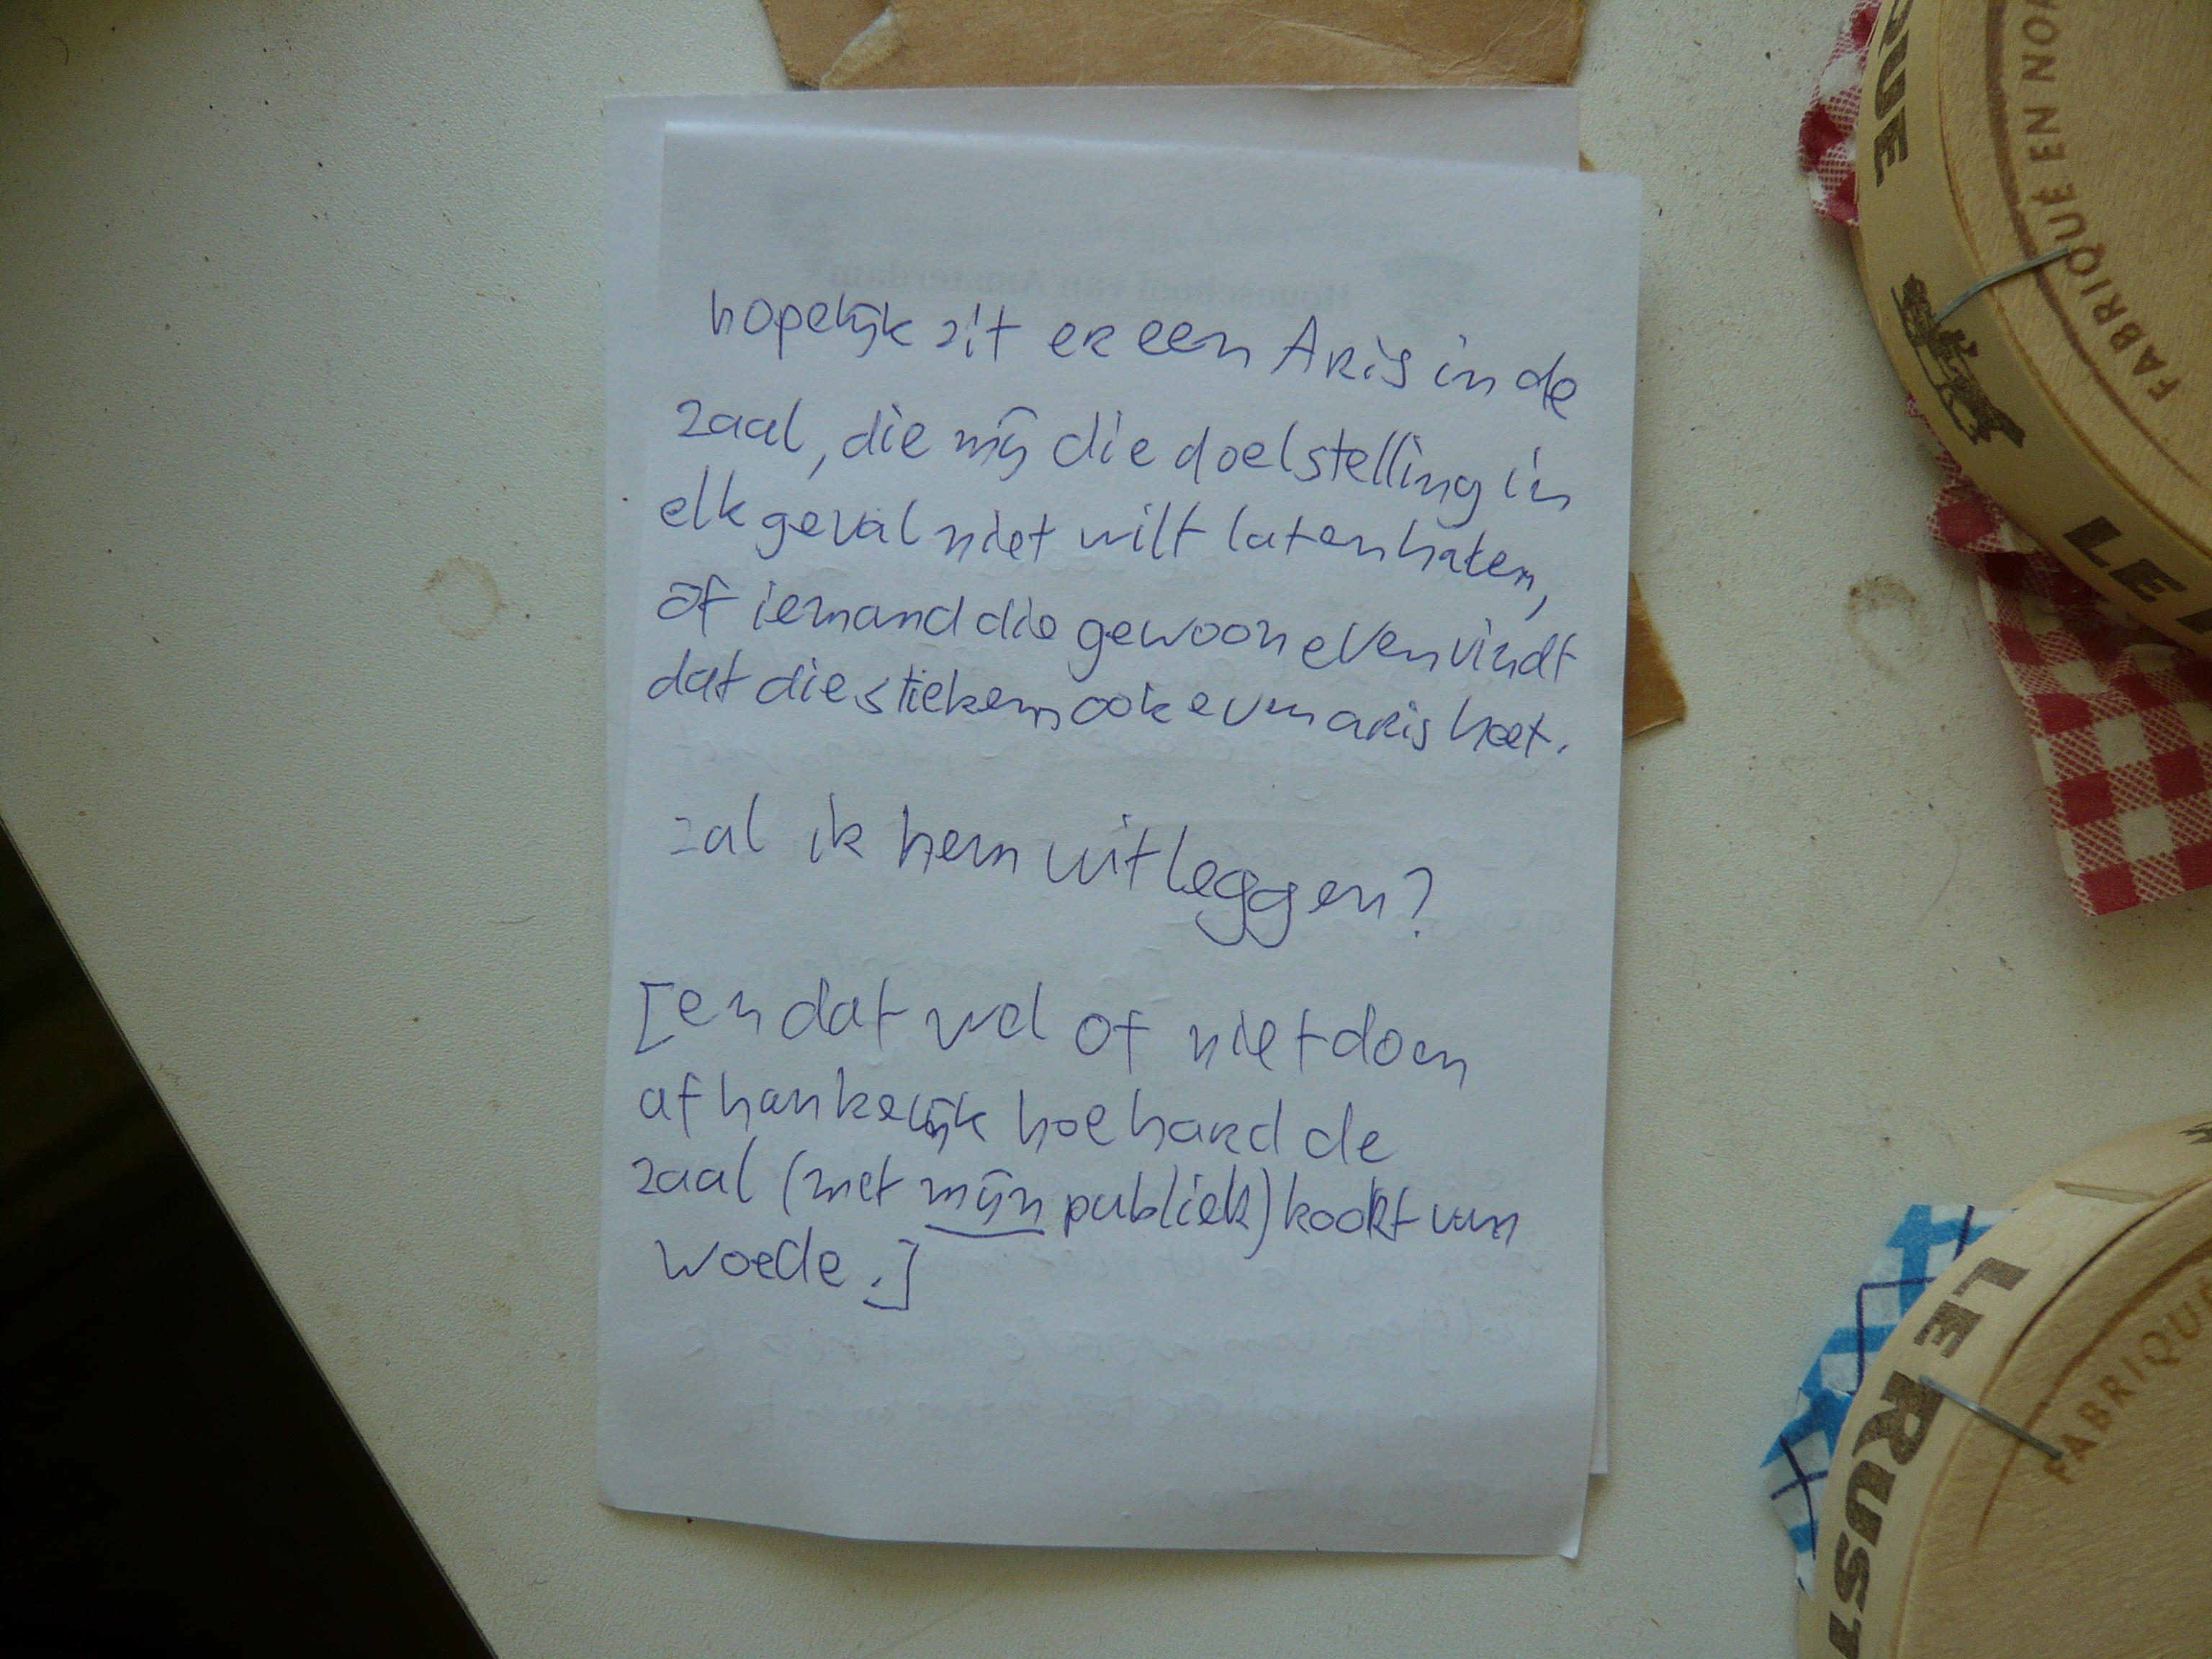 Hogeschool van Amsterdam
hopelijk zit er een Aris in de
zaal, die mij die doelstelling in
elk geval niet wilt laten halen,
of iemand die gewoon even vindt
dat die stiekem ook even aris heet.
zal ik hem uitleggen?
[en dat wel of niet doen
afhankelijk hoe hard de
zaal (met mijn publiek) kookt van
woede.]
QUE
FABRIQUÉ EN NOR
LE R
LE RUST
FABRIQUÉ